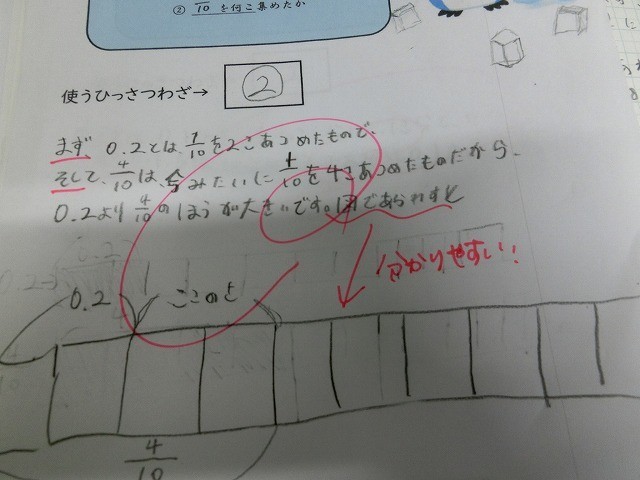 ② 1/10 を何こ集めたか
使うひっさつわざ→ ②
まず 0.2とは、1/10を2こあつめたもので、
そして、4/10は、今みたいに1/10を4こあつめたものだから、
0.2より4/10のほうが大きいです。図であらわすと
分かりやすい!!
0.2 ここのさ
4/10